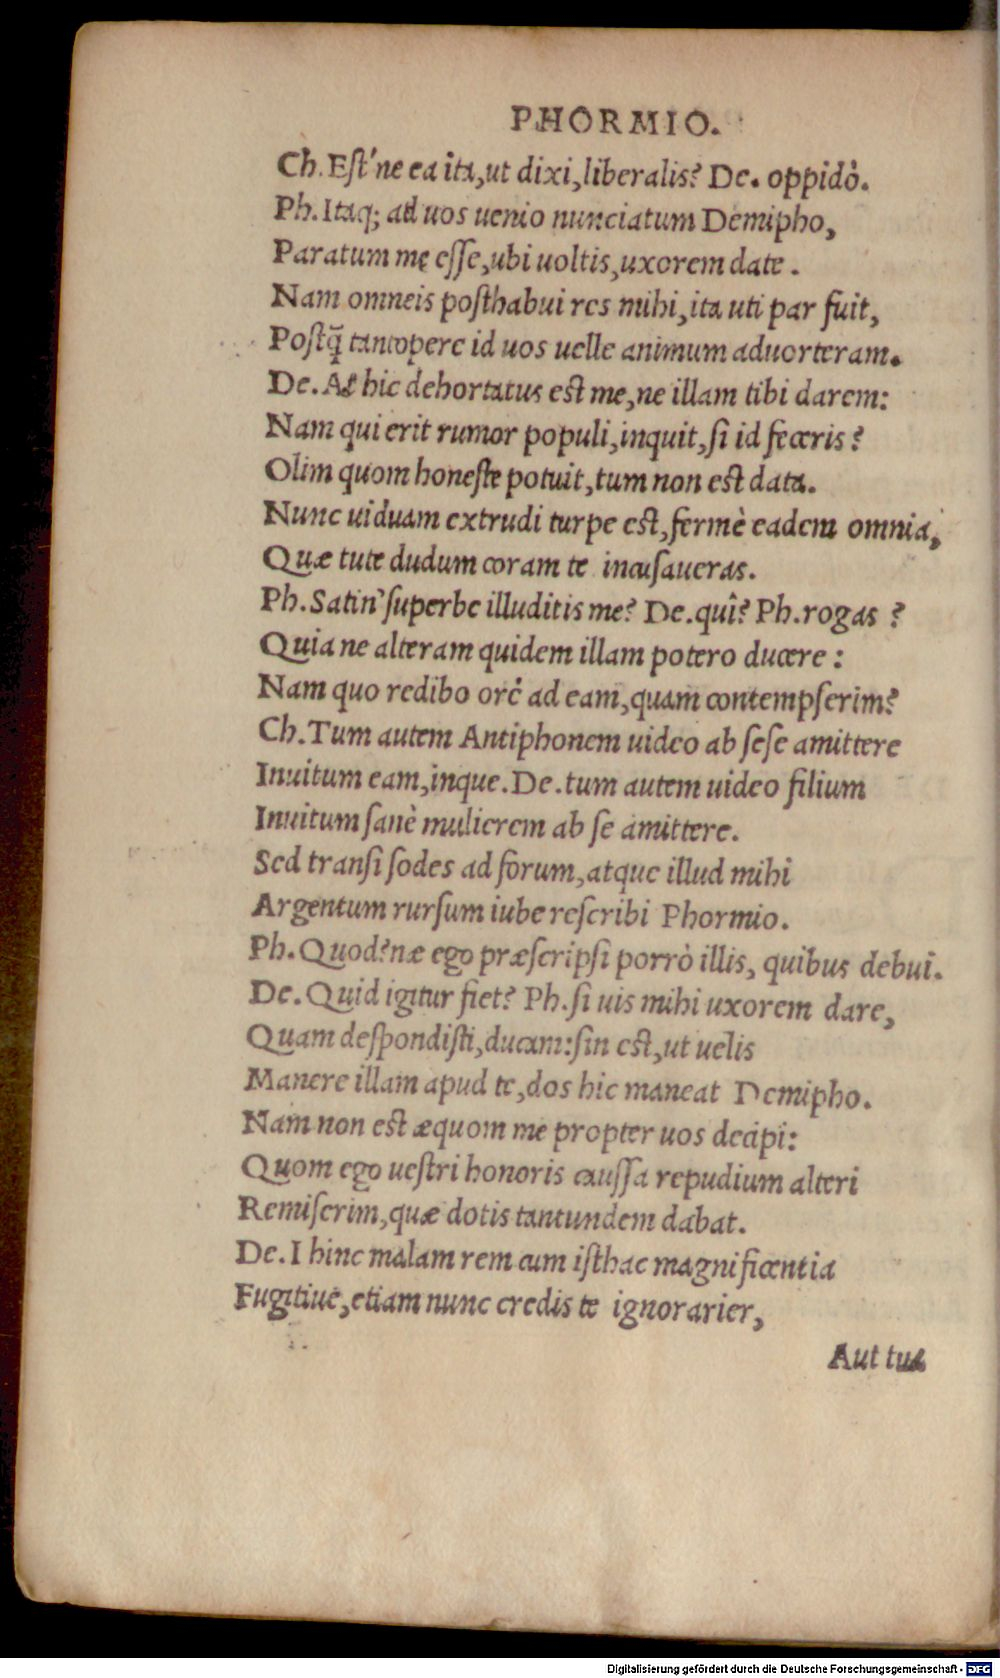 PHORMIO.
Ch. Est'ne ea ita, ut dixi, liberalis? De. oppidò.
Ph. Itaq; ad uos uenio nunciatum Demipho,
Paratum me esse, ubi uoltis, uxorem date.
Nam omneis posthabui res mihi, ita uti par fuit,
Postq̃ tantopere id uos uelle animum aduorteram.
De. At hic dehortatus est me, ne illam tibi darem:
Nam qui erit rumor populi, inquit, si id feceris?
Olim quom honeste potuit, tum non est data.
Nunc uiduam extrudi turpe est, fermè eadem omnia,
Quæ tute dudum coram te incusaueras.
Ph. Satin' superbe illuditis me? De. quî? Ph. rogas?
Quia ne alteram quidem illam potero ducere:
Nam quo redibo ore ad eam, quam contempserim?
Ch. Tum autem Antiphonem uideo ab sese amittere
Inuitum eam, inque. De. tum autem uideo filium
Inuitum sanè mulierem ab se amittere.
Sed transi sodes ad forum, atque illud mihi
Argentum rursum iube rescribi Phormio.
Ph. Quod? næ ego præscripsi porrò illis, quibus debui.
De. Quid igitur fiet? Ph. si uis mihi uxorem dare,
Quam despondisti, ducam: sin est, ut uelis
Manere illam apud te, dos hic maneat Demipho.
Nam non est æquom me propter uos decipi:
Quom ego uestri honoris caussa repudium alteri
Remiserim, quæ dotis tantundem dabat.
De. I hinc malam rem cum isthac magnificentia
Fugitiue, etiam nunc credis te ignorarier,
Aut tua
Digitalisierung gefördert durch die Deutsche Forschungsgemeinschaft - DFG